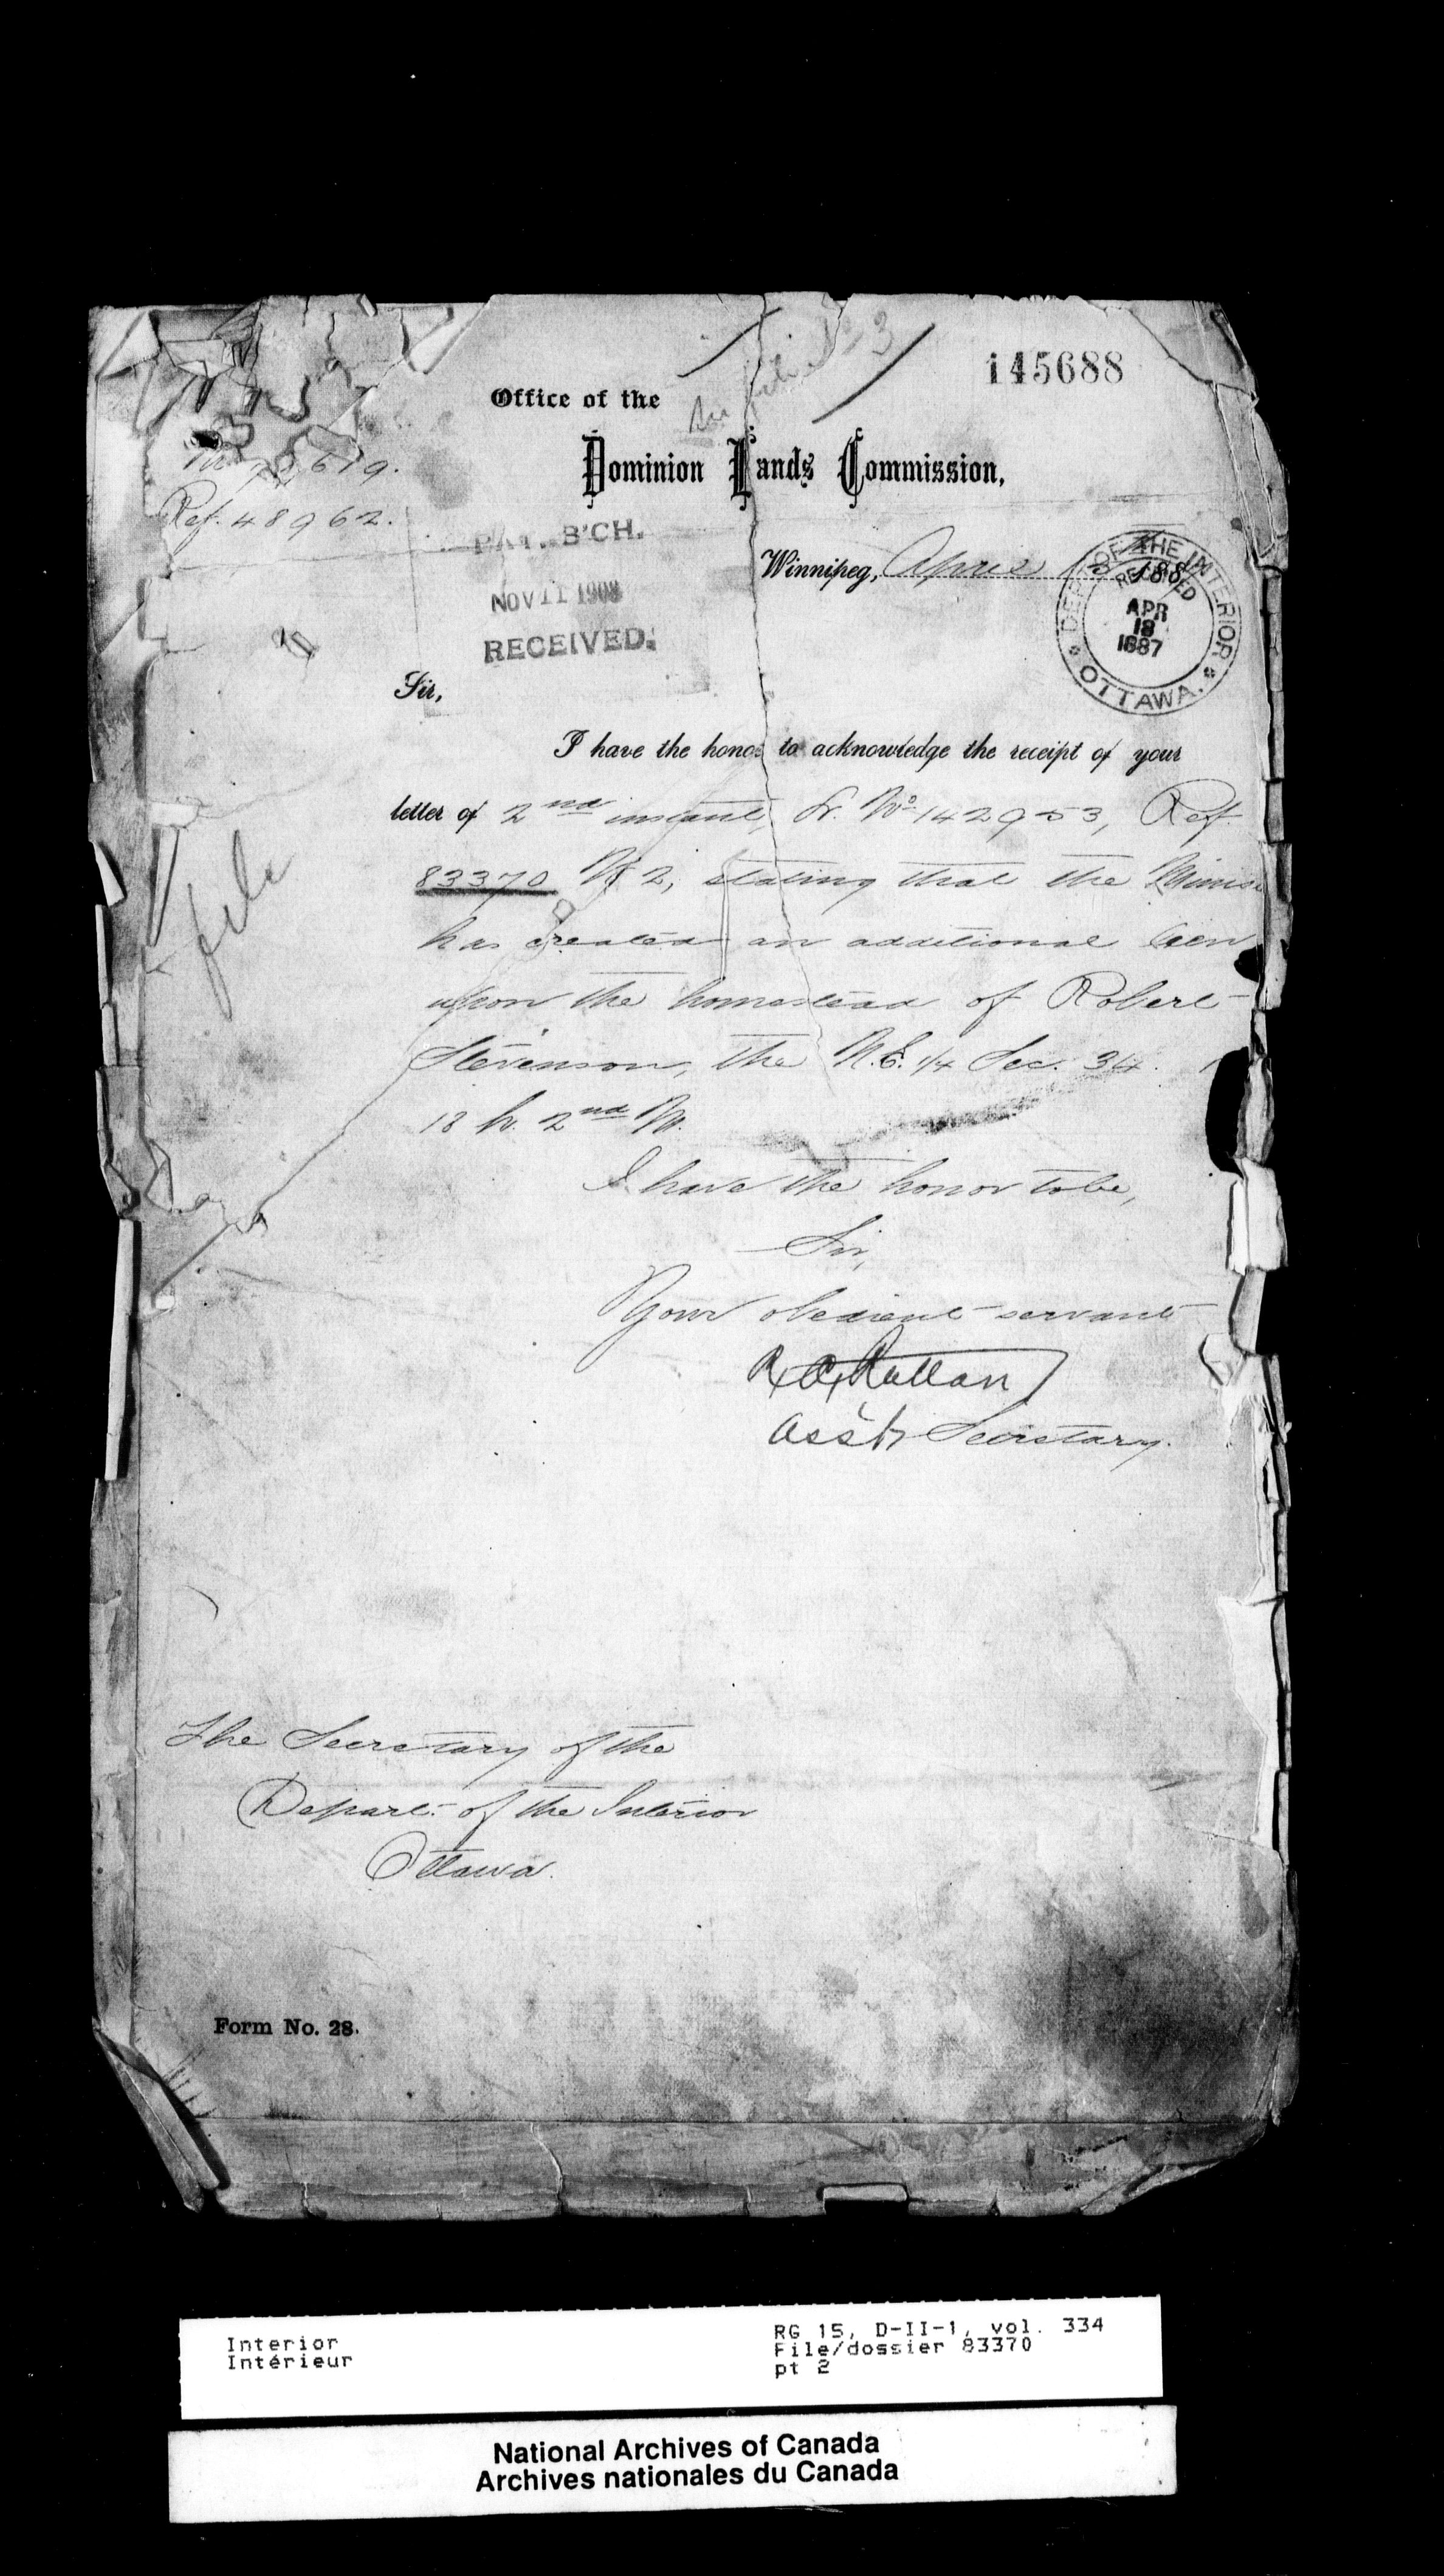 145688
Office of the
Dominion Lands Commission,
Ref. 48962.
PAT. B'CH.
NOV 11 1908
RECEIVED.
Winnipeg, April 188
DEPT OF THE INTERIOR
RECEIVED
APR
18
1887
OTTAWA.
Sir,
I have the honor to acknowledge the receipt of your
letter of 2nd instant, Lr. No 142953, Ref.
83370 2, stating that the Minis
has created an additional lien
upon the homestead of Robert
Stevenson, the N.E. 1/4 Sec. 34.
18 W. 2nd M.
file
I have the honor to be,
Sir,
Your obedient servant
Ruttan
Ass't Secretary.
The Secretary of the
Depart. of the Interior
Ottawa.
Form No. 28.
Interior
Intérieur
RG 15, D-II-1, vol. 334
File/dossier 83370
pt 2
National Archives of Canada
Archives nationales du Canada